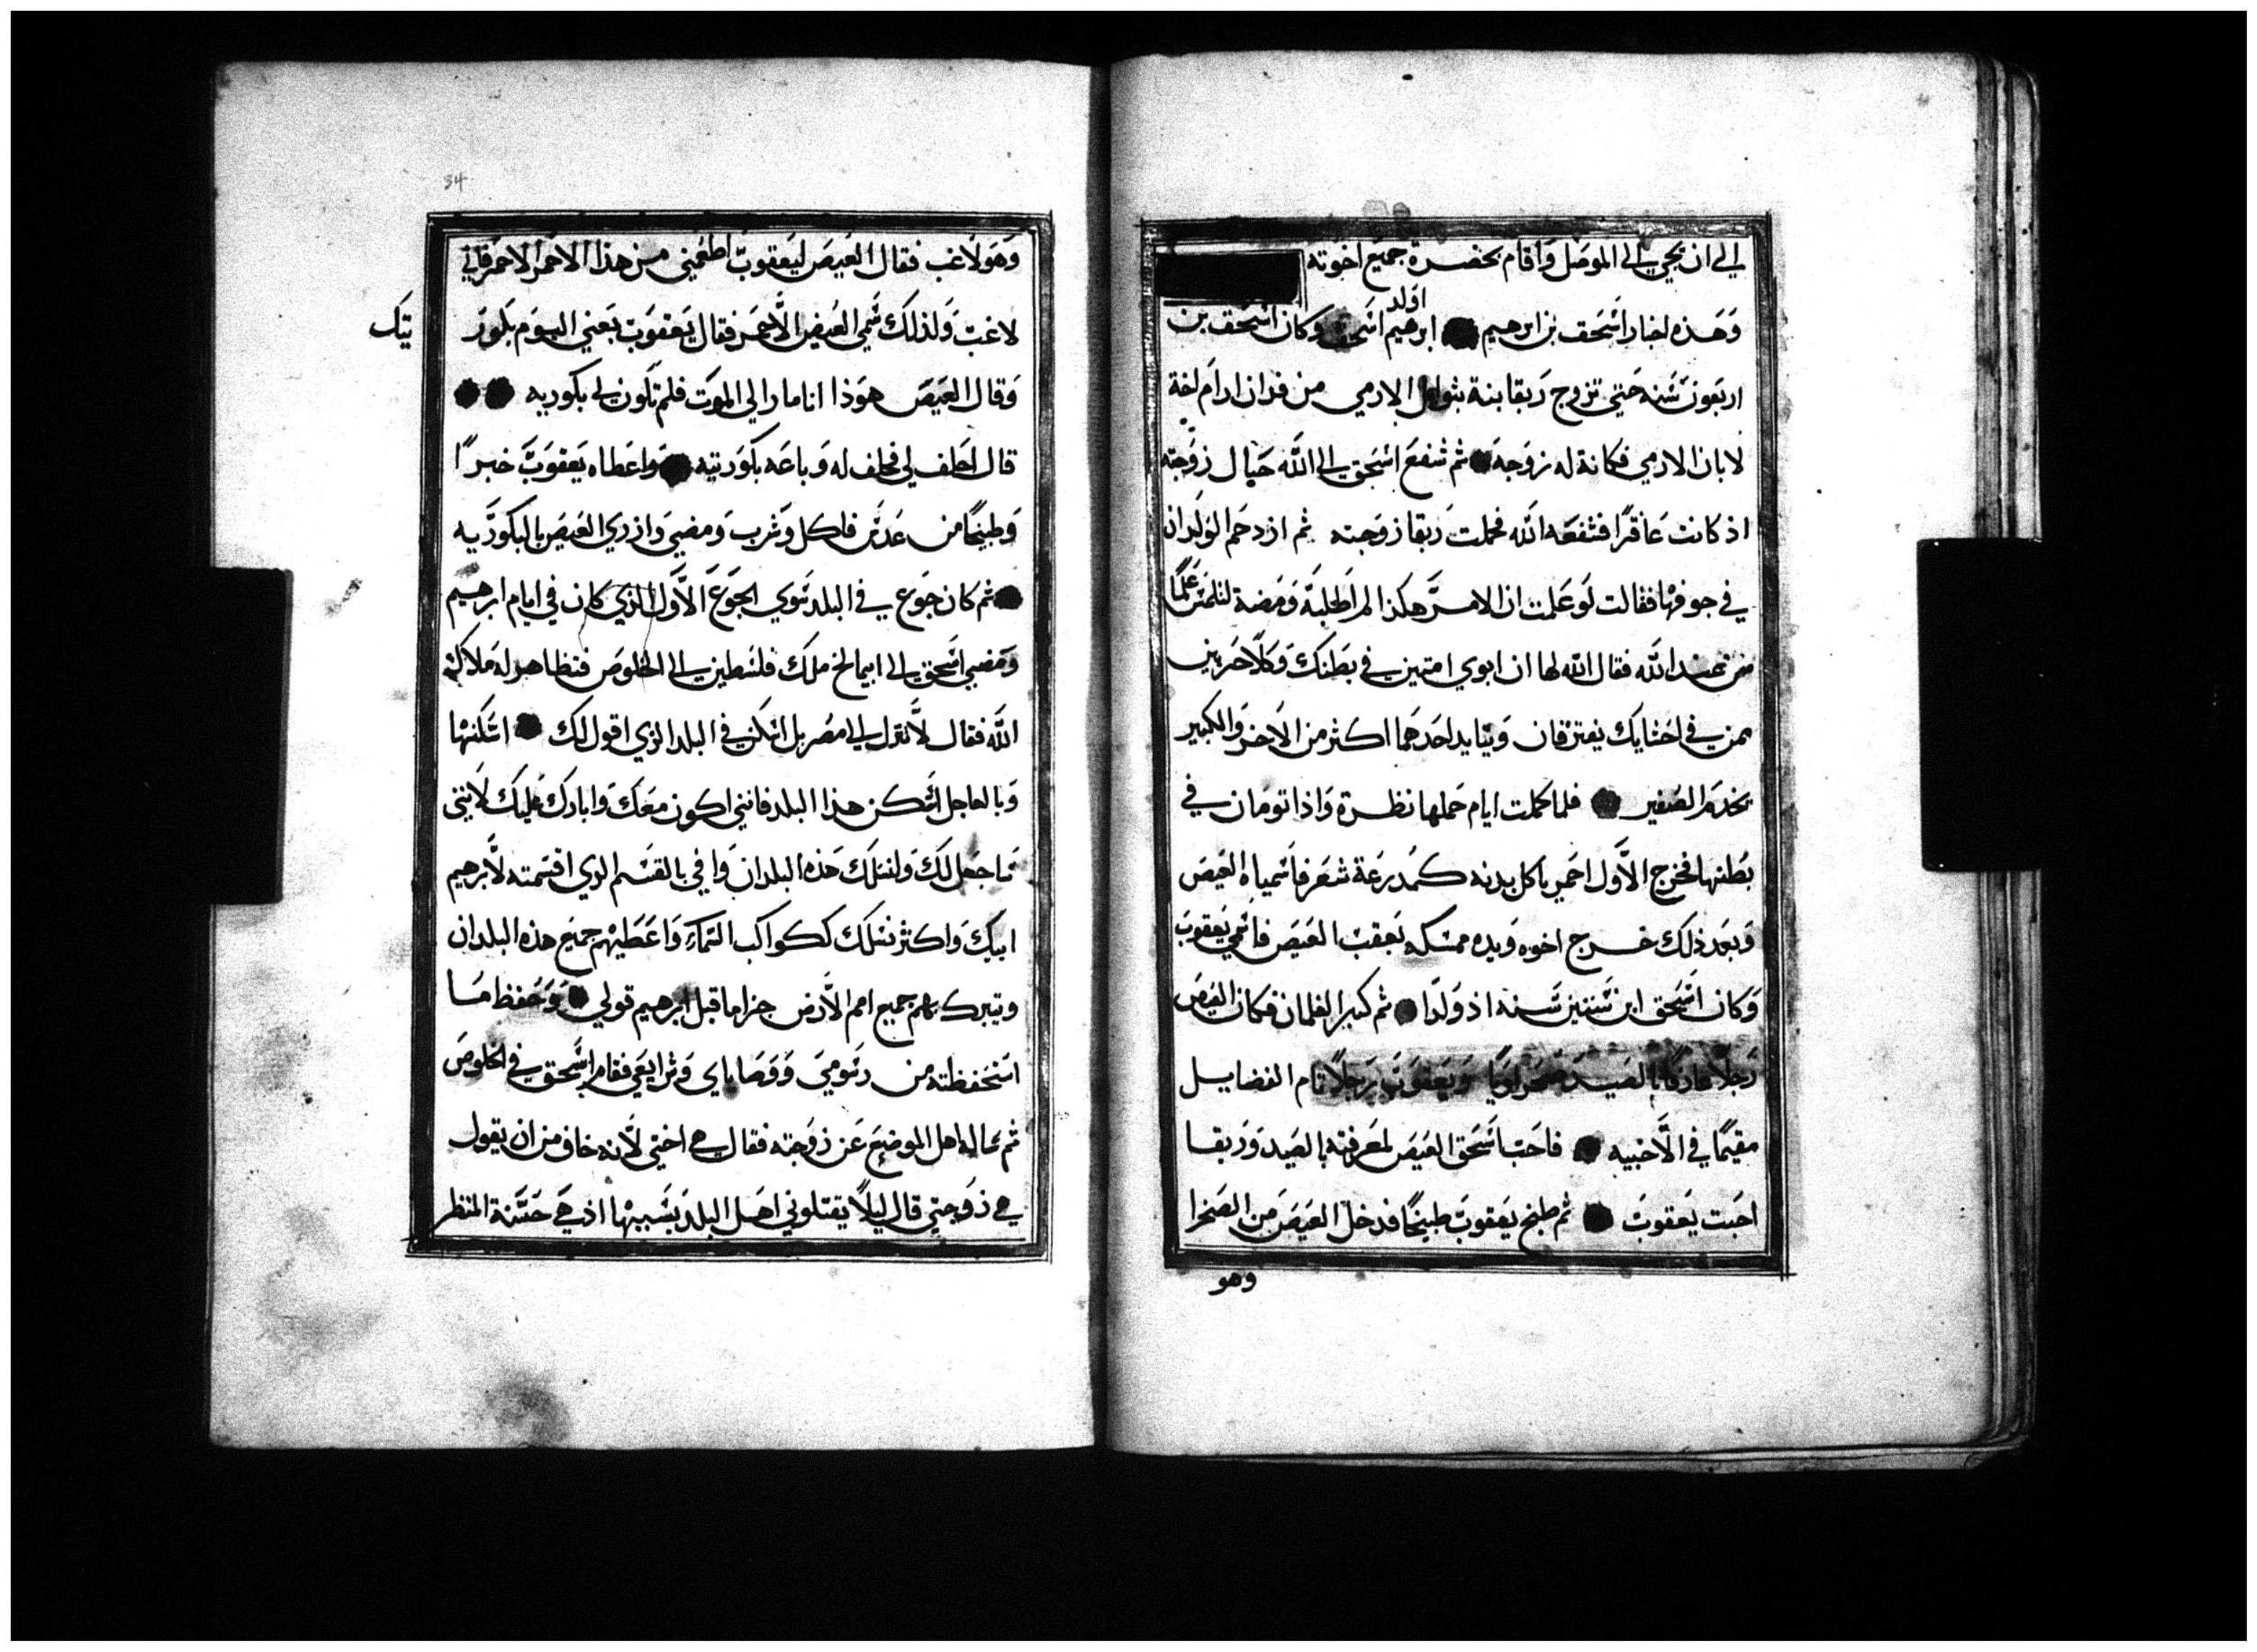 الي ان يجي الي الموصل واقام بحضرة جميع اخوته
وهذه اخبار اسحق بن ابرهيم ابرهيم اولد اسحق وكان اسحق بن
اربعون سنه حتي تزوج ربقا بنة بثوايل الارمي من فدان ارام اخة
لابان الارمي فكانة له زوجه ثم شفع اسحق الي الله حيال زوجته
اذ كانت عاقرًا فشفعه الله فحملت ربقا زوجته ثم ازدحم الولدان
في جوفها فقالت لو علمت ان الامر هكذا لم اطلبه ومضة لتلتمس علمًا
من عند الله فقال الله لها ان ابوي امتين في بطنك وكلا حزبين
من في احشايك يفترقان ويتايد احدهما اكثر من الاخر والكبير
يخدم الصغير فلما كملت ايام حملها نظرة واذا تومان في
بطنها فخرج الاول احمر با كل بدنه كمدرعة شعر فاسمياه العيص
وبعد ذلك خرج اخوه ويده ممسكه بعقب العيص فاسمي يعقوب
وكان اسحق ابن ستين سنه اذ ولدا ثم كبرا الغلمان فكان العيص
رجلا عارفا بالصيد صحراويا ويعقوب رجلا تام الفضايل
مقيمًا في الاخبيه فاحب اسحق العيص لمعرفته بالصيد وربقا
احبت يعقوب ثم طبخ يعقوب طبيخًا فدخل العيص من الصحرا
وهو
34
وهو لاغب فقال العيص ليعقوب اطعمني من هذا الاحمر الاحمر فاني
لاغب ولذلك سمي العيص الاحمر فقال يعقوب بعني اليوم بكور
يتك
وقال العيص هوذا انا مار الي الموت فلم تكون لي بكوريه
قال احلف لي فحلف له وباعه بكوريته واعطاه يعقوب خبزًا
وطبيخًا من عدس فاكل وشرب ومضي وازري العيص بالبكوريه
ثم كان جوع في البلد سوي الجوع الاول الذي كان في ايام ابرهيم
ومضي اسحق الي ابيمالخ ملك فلسطين الي الخلوص فتظاهر له ملاك
الله فقال لا تنزل الي مصر بل اسكن في البلد الذي اقول لك اسكنها
وبالعاجل اسكن هذا البلد فانني اكون معك وابارك عليك لانني
ساجعل لك ولنسلك هذه البلدان وافي بالقسم الذي اقسمته لابرهيم
ابيك واكثر نسلك ككواكب السماء واعطيهم جميع هذه البلدان
ويتبرك بهم جميع امم الارض جزا ما قبل ابرهيم قولي وحفظ ما
استحفظته من رسومي ووصاياي وشرايعي فقام اسحق في الخلوص
ثم ساله اهل الموضع عن زوجته فقال هي اختي لانه خاف من ان يقول
هي زوجتي قال ليلا يقتلوني اهل البلد بسببها اذ هي حسنة المنظر